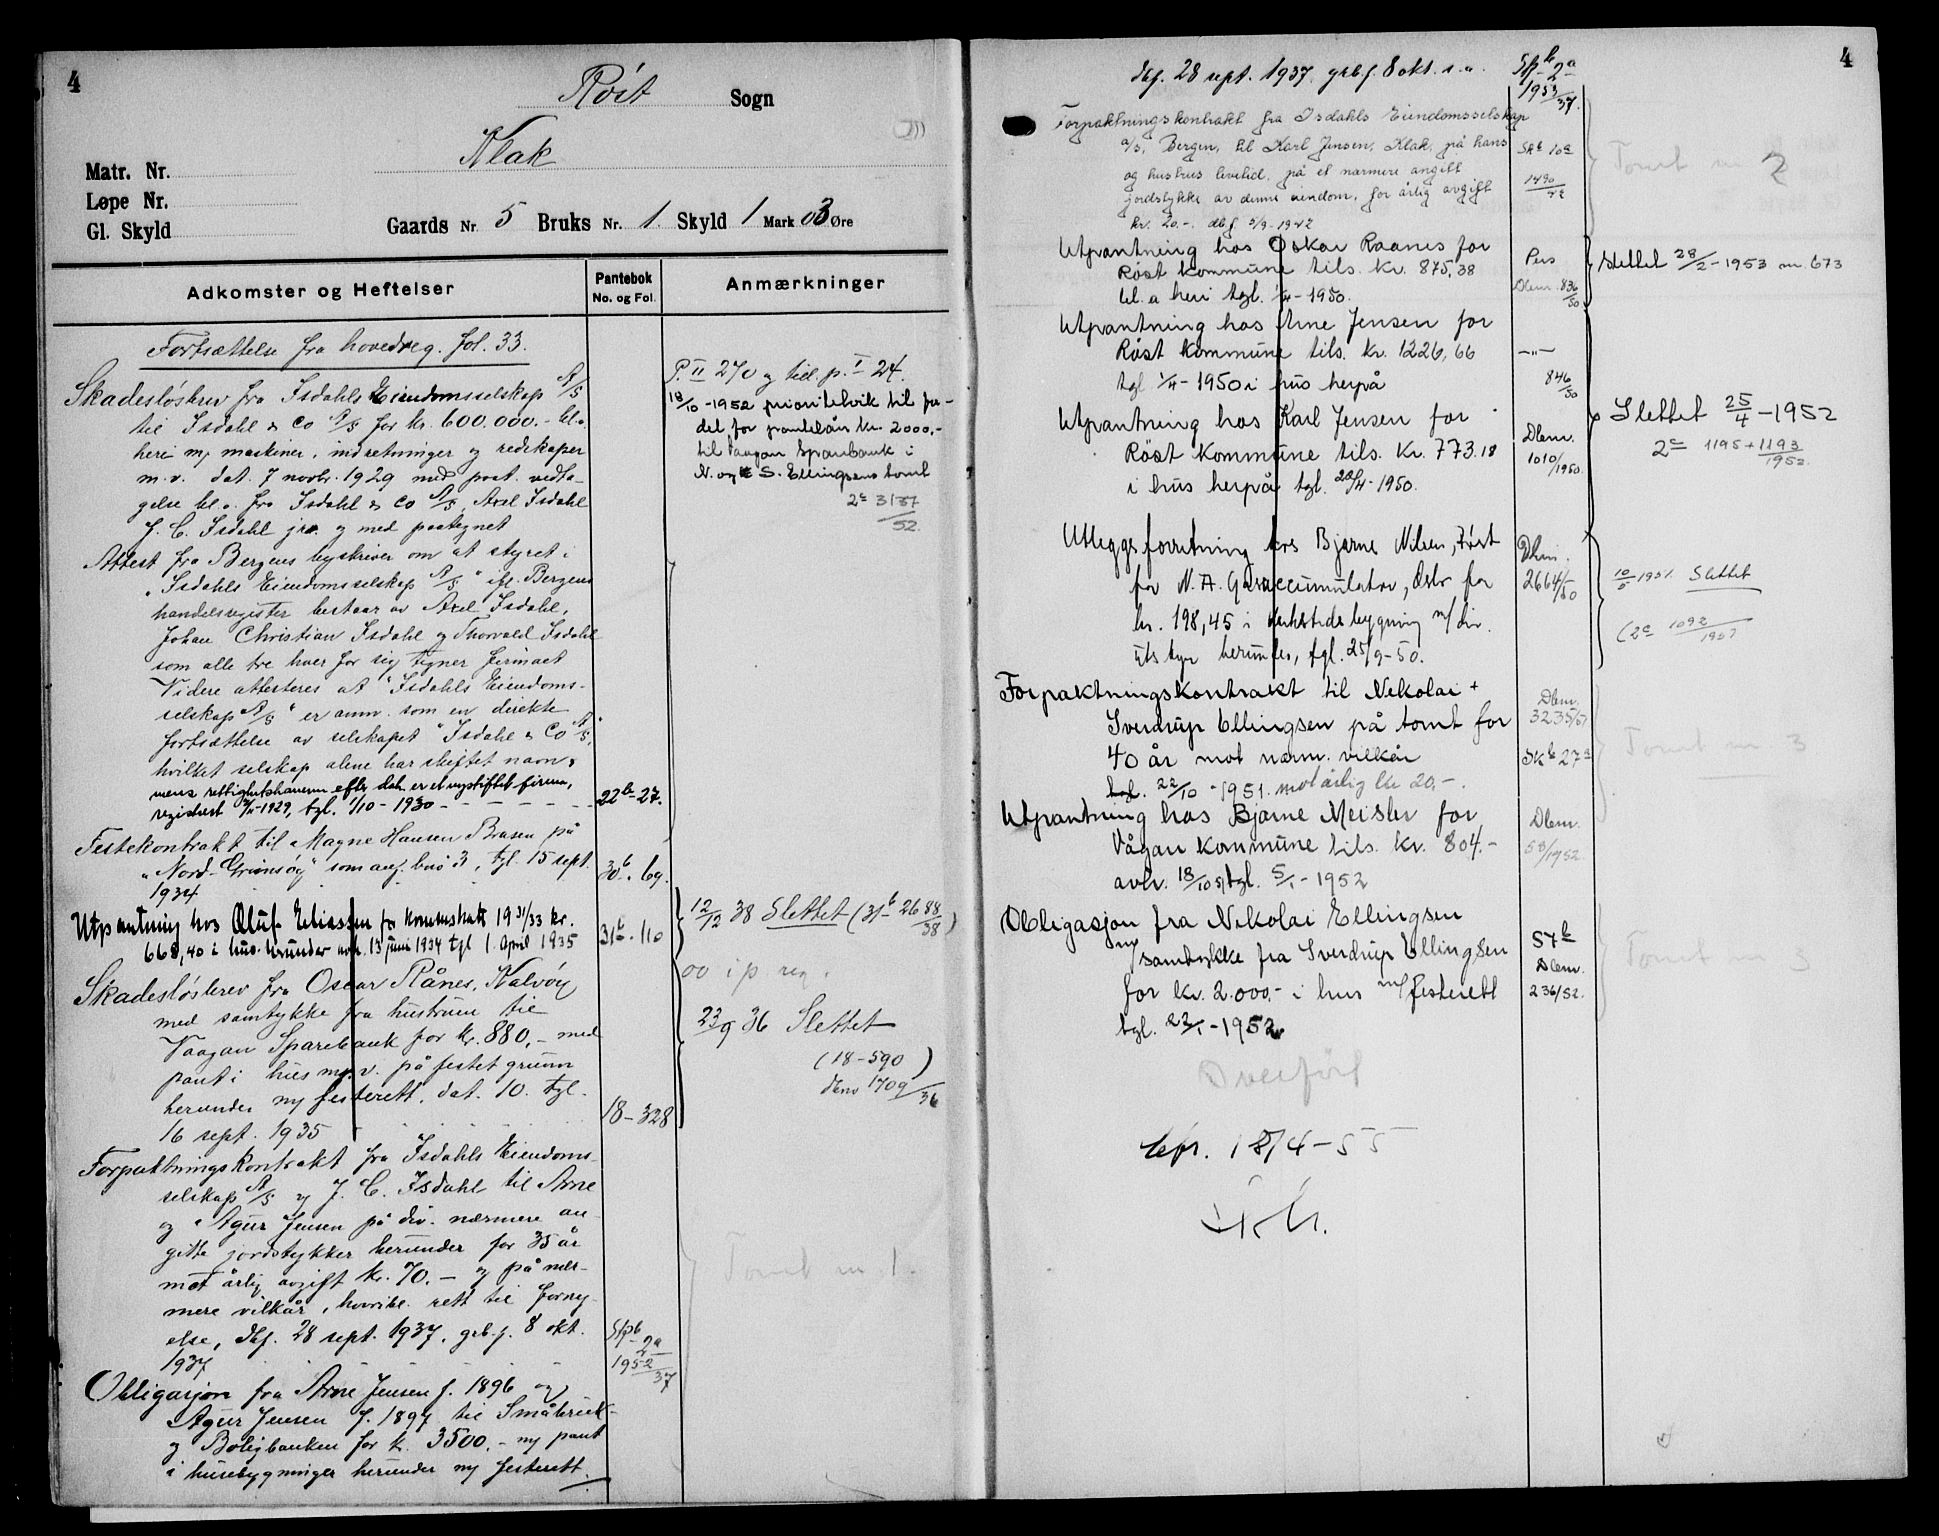 4
Röst Sogn
Klak
Matr. Nr.
Løpe Nr.
Gl. Skyld
Gaards Nr. 5 Bruks Nr. 1. Skyld 1 Mark 03 Øre
Adkomster og Heftelser
Pantebok
No. og Fol.
Anmærkninger
Fortsættelse fra hovedreg. fol. 33.
Skadesløsbrev fra Isdahls Eiendomsselskap A/S
til Isdahl & Co A/S for kr. 600.000.- bl.a.
heri m/ maskiner, indretninger og redskaper
m.v. dat. 7 novbr. 1929 med paat. vedta-
gelse bl.a. fra Isdahl & Co A/S, Axel Isdahl
J. C. Isdahl jr. og med paategnet
Attest fra Bergens byskriver om at styret i
"Isdahls Eiendomsselskap A/S" ifl. Bergens
handelsregister bestaar av Axel Isdahl,
Johan Christian Isdahl og Thorvald Isdahl
som alle tre hver for sig tegner firmaet
Videre attesteres at "Isdahls Eiendoms-
selskap A/S" er anm. som en direkte
fortsættelse av selskapet "Isdahl & Co A/S",
hvilket selskap alene har skiftet navn,
mens rettighetshaveren efter dok. er et nystiftet firma,
registrert 7/11-1929, tgl. 1/10-1930 - - - - - -
22b-27.
P. II 270 og till. p. I 24.
18/10-1952 prioritetsvik til for-
del for pantelån kr. 2000.-
til Vaagan Sparebank i
N. og S. Ellingsens tomt
2c 3137/52.
Festekontrakt til Magne Hansen Brasen på
"Nord-Grimsøy" som anj. bnö 3, tgl. 15 sept.
1934
30b. 69.
Utpantning hos Oluf Eliassen for kommskatt 1931/33 kr.
668,40 i hus herunder avh. 13 juni 1934 tgl 1. April 1935
31b. 110
12/12 38 Slettet (31b 2688/38)
Skadesløsbrev fra Oscar Rånes, Kalvöy
med samtykke fra hustruen til
Vaagan Sparebank for kr. 880,- med
pant i hus m.v. på festet grunn
herunder m/ festerett, dat. 10. tgl.
16 sept. 1935
18-328
oo i p reg.
23/9 36 Slettet
(18-590)
dbno 1709/36
Forpaktningskontrakt fra Isdahls Eiendoms-
selskap A/S og J. C. Isdahl til Arne
og Agur Jensen på div. nærmere an-
gitte jordstykker herunder for 35 år
mot årlig avgift kr. 70.- og på nær-
mere vilkår, hvoribl. rett til forny-
else, dbf. 28 sept. 1937, grb.f. 8 okt.
1937
Skpb 2a
1952/37
Tomt nr. 1.
Obligasjon fra Arne Jensen f. 1896 og
Agur Jensen f. 1897 til Småbruk-
og Boligbanken for kr. 3500.- m/ pant
i husebygninger herunder m/ festerett.
4
dbf. 28 sept. 1937. grb.f. 8 okt. s.a.
Skpb 2a
1953/37.
Forpaktningskontrakt fra Isdahls Eiendomsselskap
a/s, Bergen, til Karl Jensen, Klak, på hans
og hustrus levetid, på et nærmere angitt
jordstykke av denne eiendom, for årlig avgift
kr. 20.-. dbf 5/9-1942
Skb 10a
1490/42
Tomt nr 2
Utpantning hos Oskar Raanes for
Røst kommune tils. kr. 875,38
bl.a heri tgl. 1/4-1950.
Pers
Dbnr. 836/50
Slettet 28/2-1953 nr. 673
Utpantning hos Arne Jensen for
Røst kommune tils. kr. 1226,66
tgl 1/4-1950 i hus herpå
-"-
846/50
Utpantning hos Karl Jensen for
Røst Kommune tils. kr. 773.18
i hus herpå tgl. 20/4-1950.
Dbnr.
1010/1950.
Slettet 25/4-1952
2c 1195+1193/1952.
Utleggsforretning hos Bjarne Nilsen, Røst
for N. A. Gasaccumulator, Oslo for
kr. 198,45 i verkstedsbygning m/ div.
utstyr herunder, tgl. 25/9-50.
Dbnr.
2664/50
10/5 1951. Slettet
(2c 1092/1951
Forpaktningskontrakt til Nikolai +
Sverdrup Ellingsen på tomt for
40 år mot nærm. vilkår
tgl. 22/10-1951. mot årlig kr 20,-.
Dbnr.
3235/51
Skb 27a
Tomt nr 3
Utpantning hos Bjarne Meisler for
Vågan kommune tils. kr. 804.-
avh. 18/10 51 tgl. 5/1-1952
Dbnr.
58/1952
Obligasjon fra Nikolai Ellingsen
m/ samtykke fra Sverdrup Ellingsen
for kr. 2.000,- i hus m/ festerett
tgl. 22/1-1952.
57b
Dbnr.
236/52.
Tomt nr 3
Overført
18/4-55